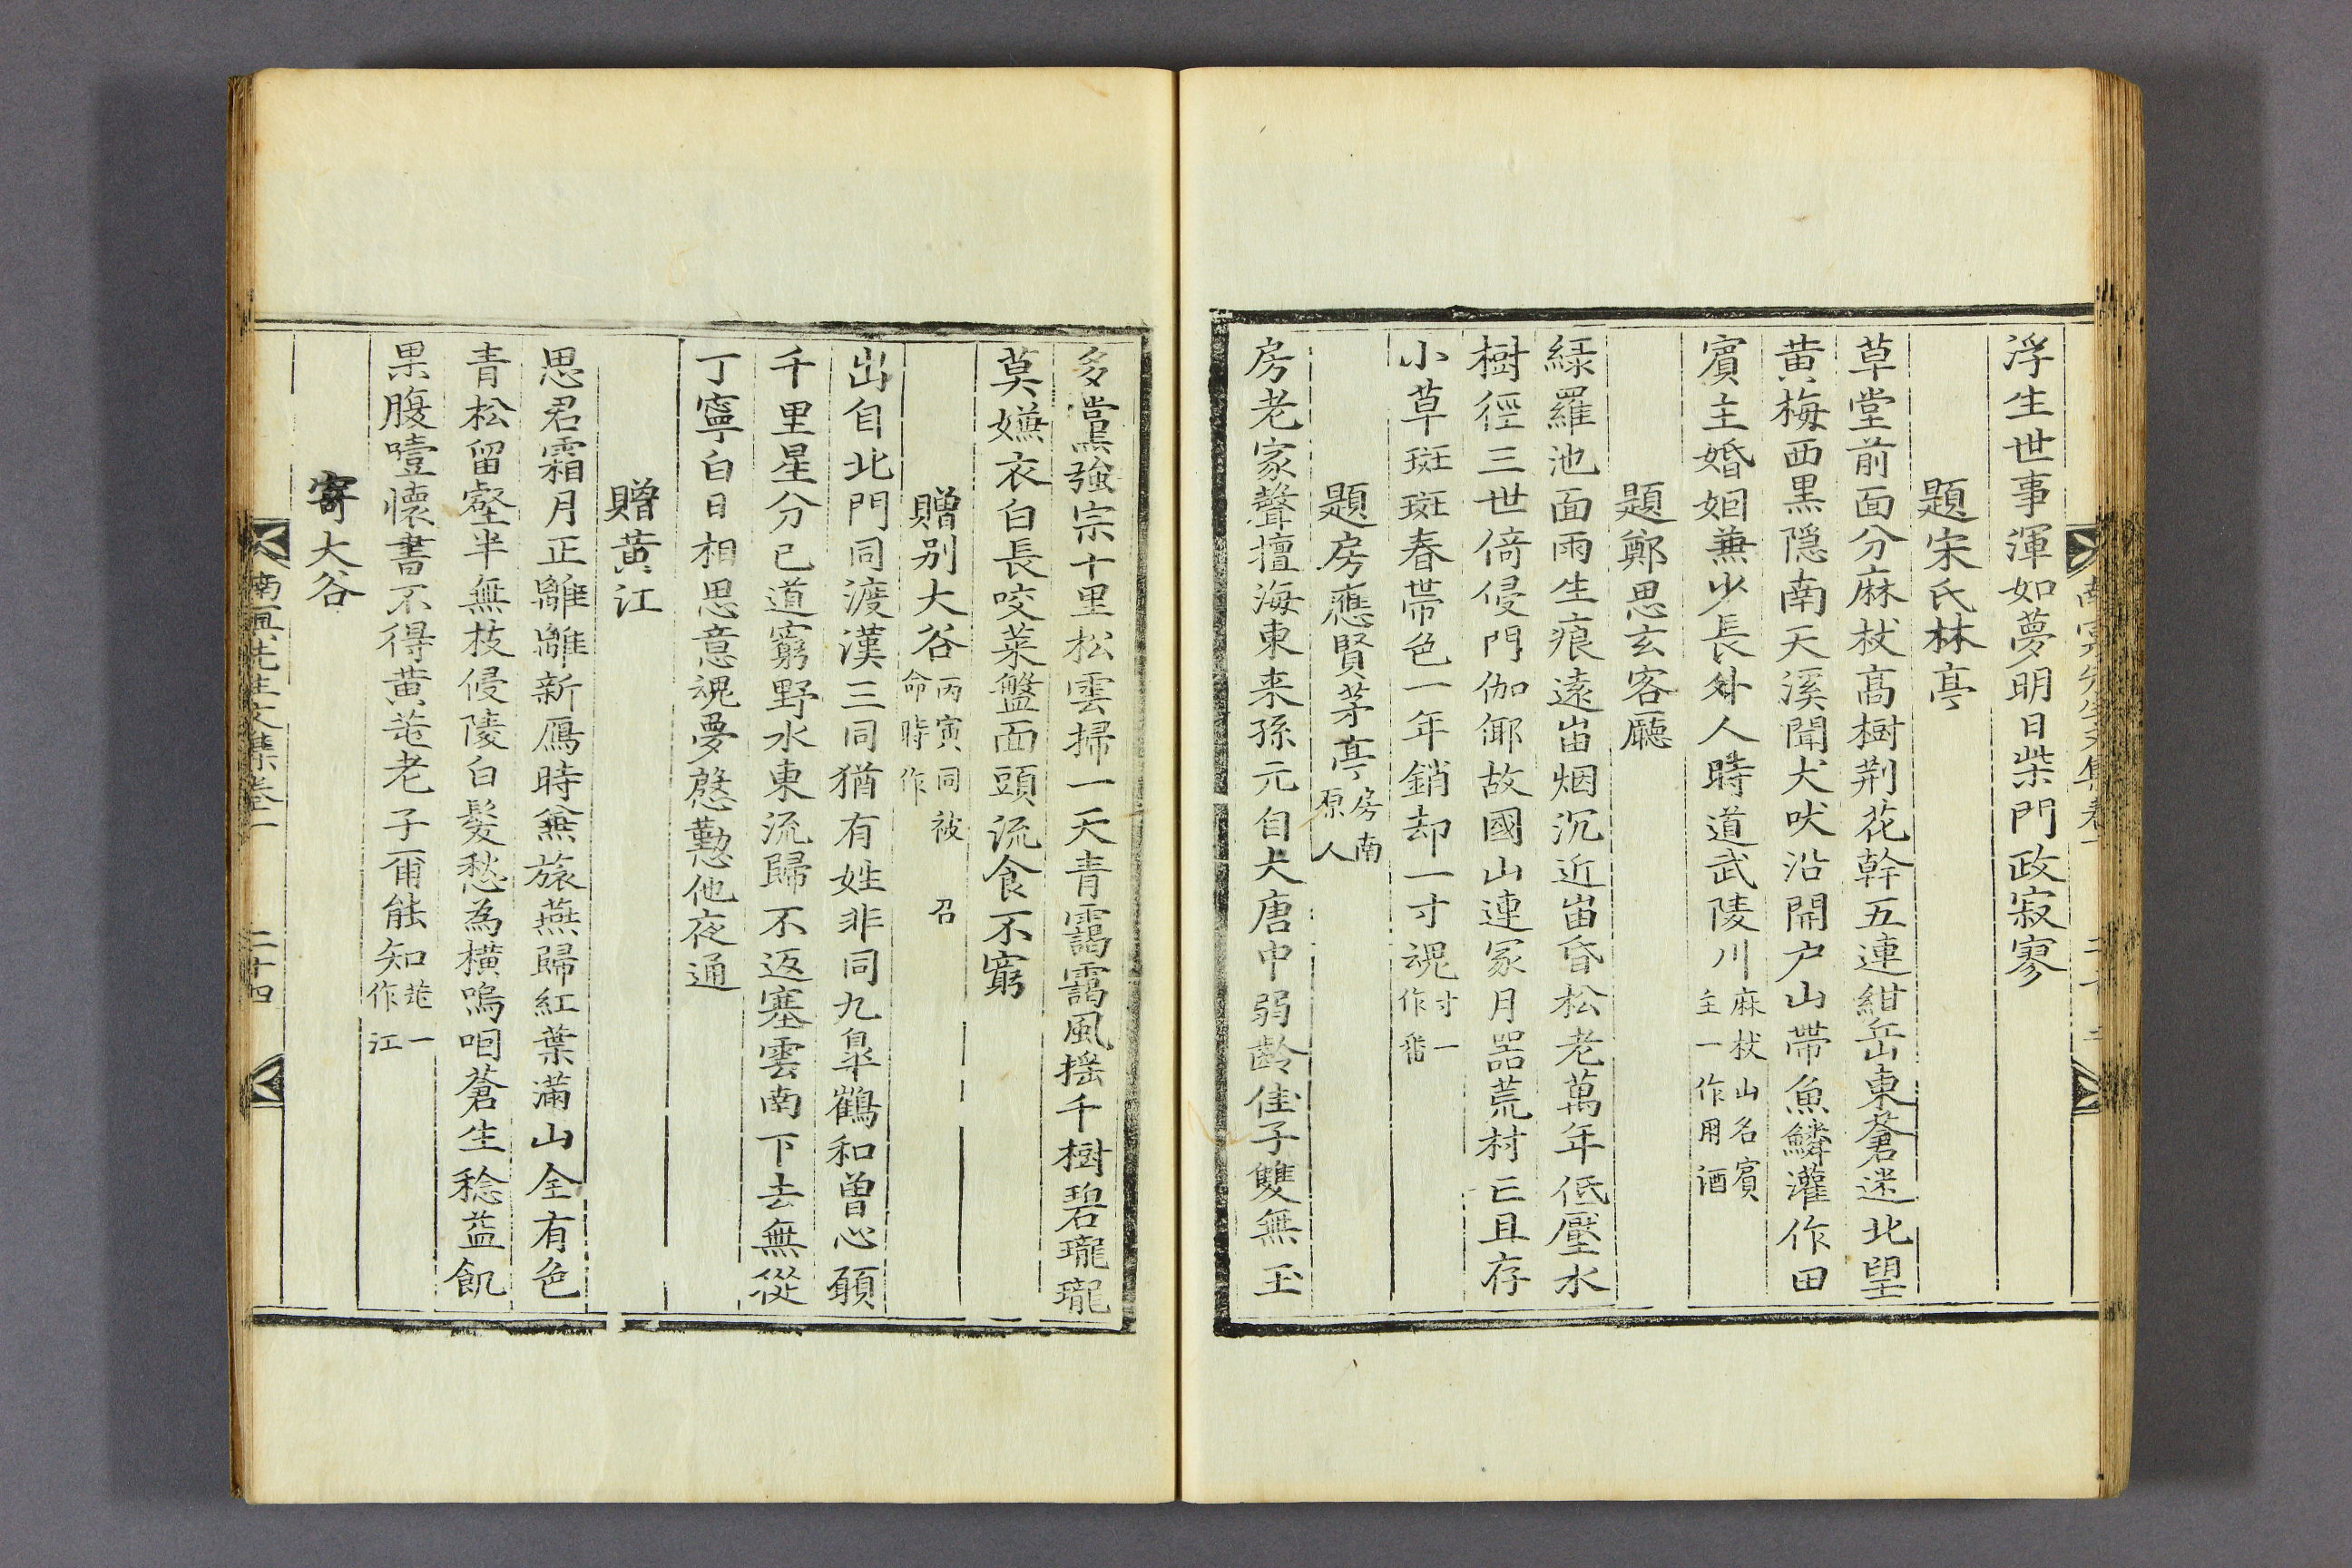 浮生世事渾如夢明日柴門政寂寥
題宋氏林亭
草堂前面分麻杖髙樹荆花幹五連紺岳東蒼迷北望
黄梅西黒隠南天溪聞犬吠沿開户山帶魚鱗灌作田
賓主婚姻兼少長外人時道武陵川 麻杖山名賓
主一作用酒
題鄭思玄客廳
綠羅池面雨生痕遠峀烟沉近峀昏松老萬年低壓水
樹徑三世倚侵門伽倻故國山連冢月噐荒村亡且存
小草斑斑春帶色一年銷却一寸魂 寸一
作番
題房應賢茅亭 房南
原人
房老家聲擅海東来孫元自大唐中弱齡佳子雙無玉
多黨強宗十里松雲掃一天青靄靄風揺千樹碧瓏瓏
莫嫌衣白長咬菜盤面頭流食不窮
贈别大谷 丙寅同被 召
命時作
出自北門同渡漢三同猶有姓非同九臯鶴和曽心願
千里星分已道窮野水東流歸不返塞雲南下去無從
丁寧白日相思意魂夢慇懃他夜通
贈黄江
思君霜月正離離新鴈時兼旅燕歸紅葉滿山全有色
青松留壑半無枝侵陵白髪愁為橫嗚咽蒼生稔益飢
果腹噎懷書不得黄芚老子爾能知 芚一
作江
寄大谷
南冥先生文集卷一 二十四